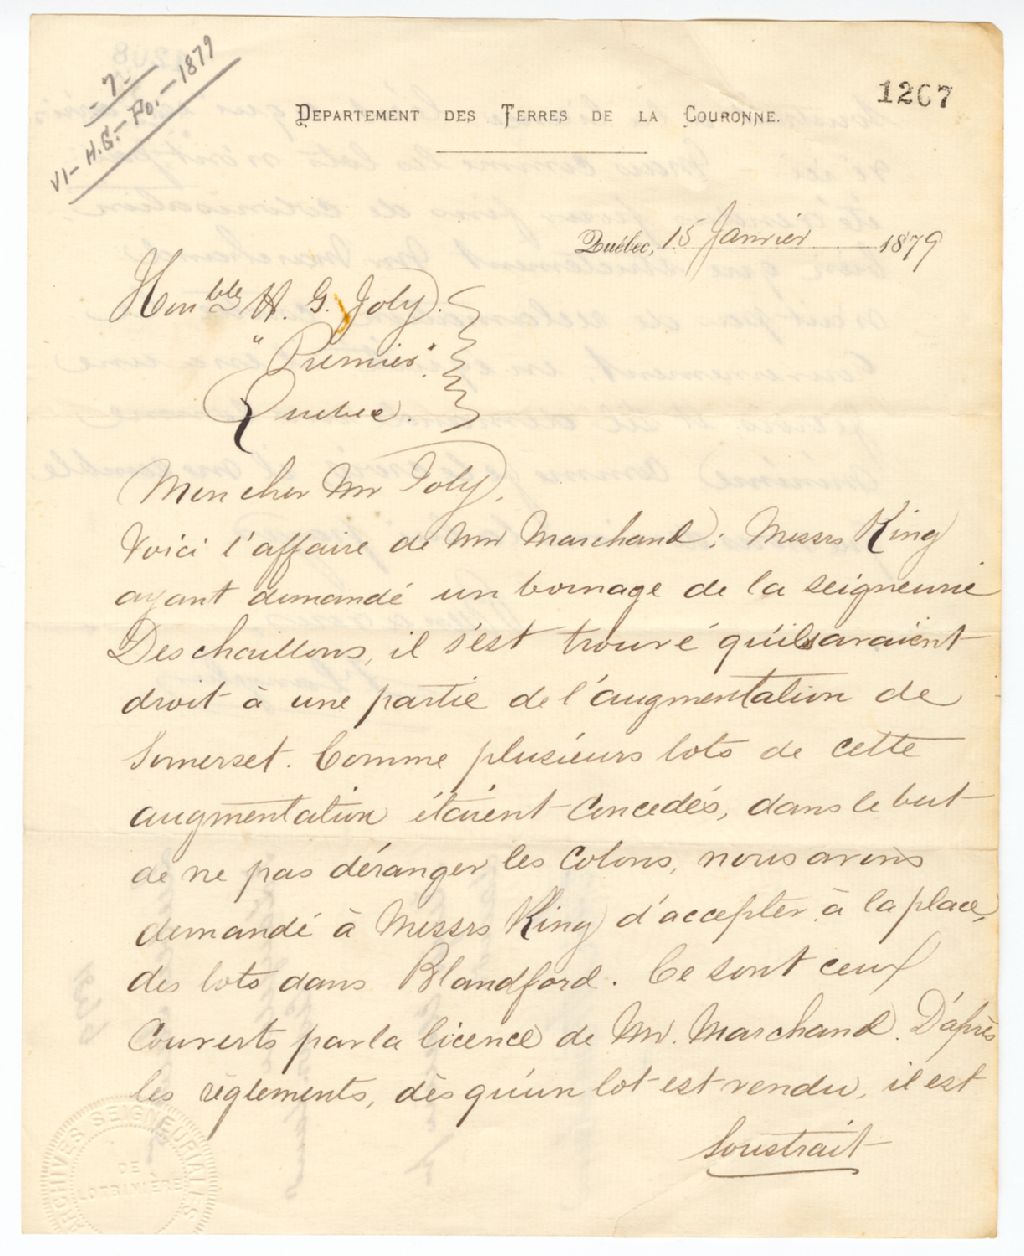 - 7 -
VI - H.G. - Po. - 1879
1267
DEPARTEMENT DES TERRES DE LA COURONNE.
Québec, 15 Janvier 1879
Honble H. G. Joly.
"Premier".
Quebec.
Mon cher Mr Joly,
Voici l'affaire de Mr Marchand: Messrs King
ayant demandé un bornage de la seigneurie
Deschaillons, il s'est trouvé qu'ils avaient
droit à une partie de l'augmentation de
Somerset. Comme plusieurs lots de cette
augmentation étaient concedés, dans le but
de ne pas déranger les colons, nous avons
demandé à Messrs King d'accepter à la place,
des lots dans Blandford. Ce sont ceux
couverts par la licence de Mr. Marchand. D'après
les règlements, dès qu'un lot est vendu, il est
soustrait
ARCHIVES SEIGNEURIALES
DE
LOTBINIÈRE